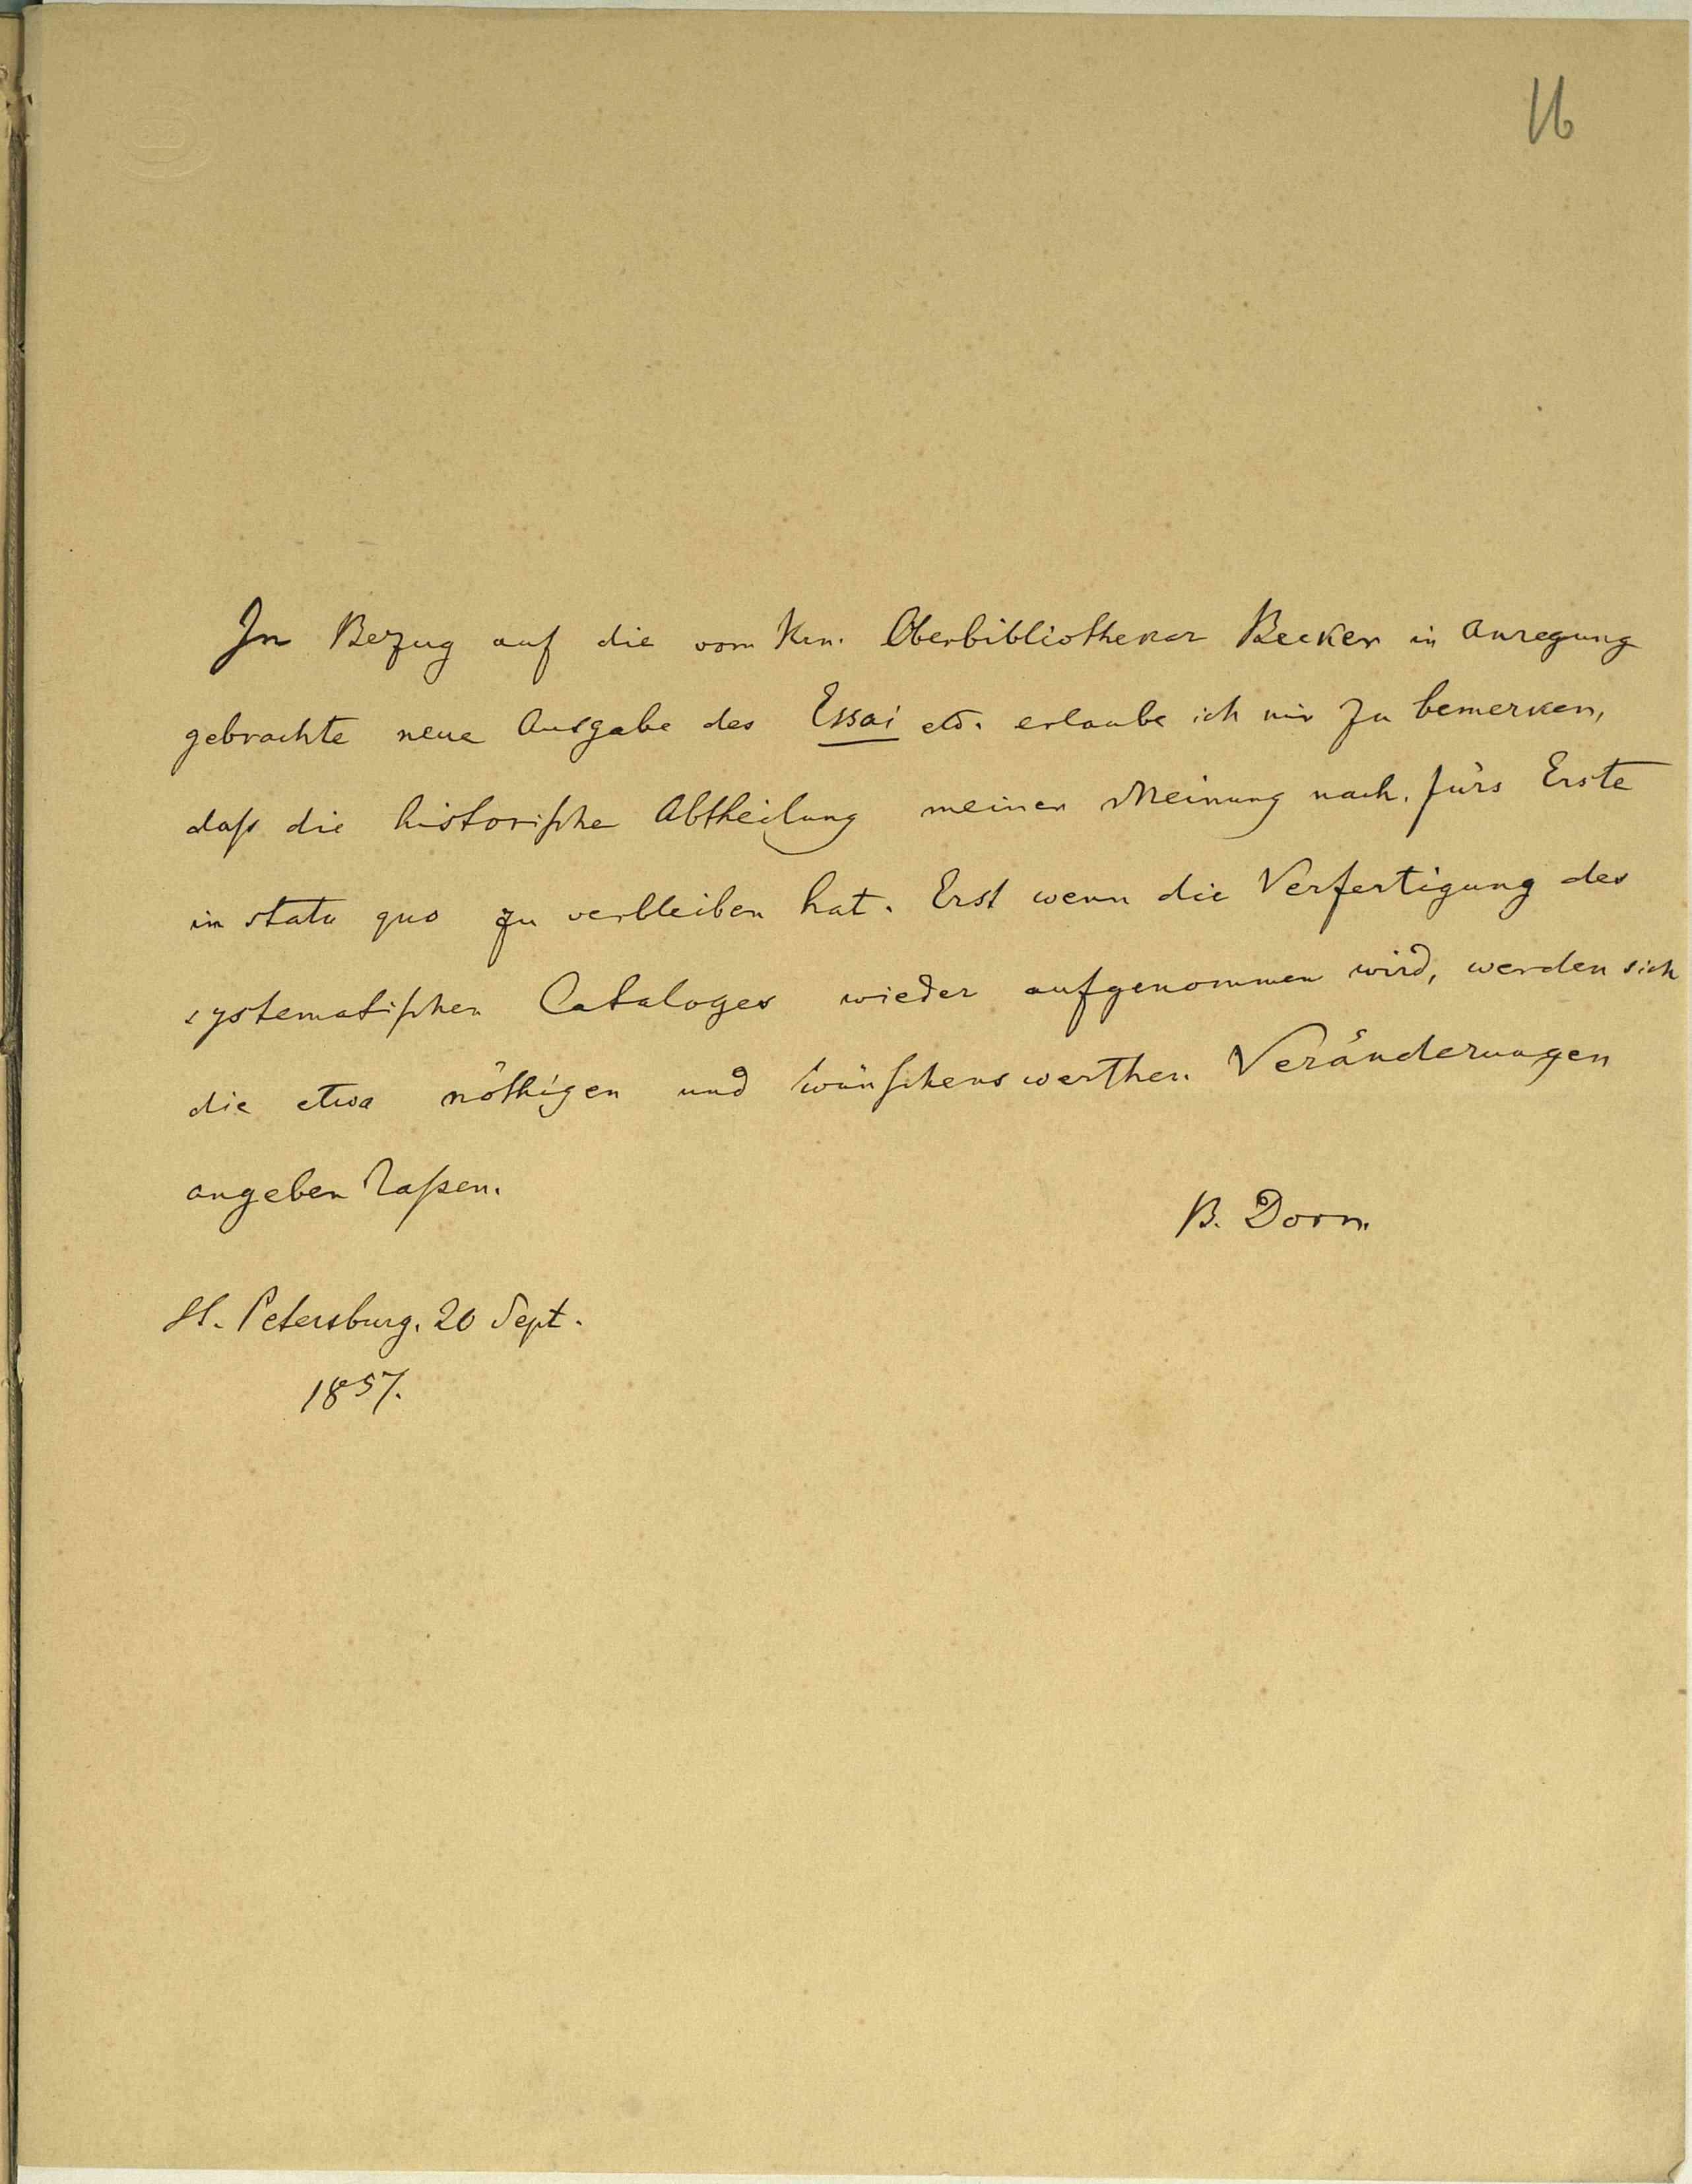 16
In Bezug auf die vom Hrn. Oberbibliothekar Becker in Anregung
gebrachte neue Ausgabe des Essai etc. erlaube ich mir zu bemerken,
daß die historische Abtheilung meiner Meinung nach, fürs Erste
in statu quo zu verbleiben hat. Erst wenn die Verfertigung des
systematischen Cataloges wieder aufgenommen wird, werden sich
die etwa nöthigen und wünschenswerthen Veränderungen
angeben laßen.
B. Dorn.
St. Petersburg. 20 Sept.
1857.